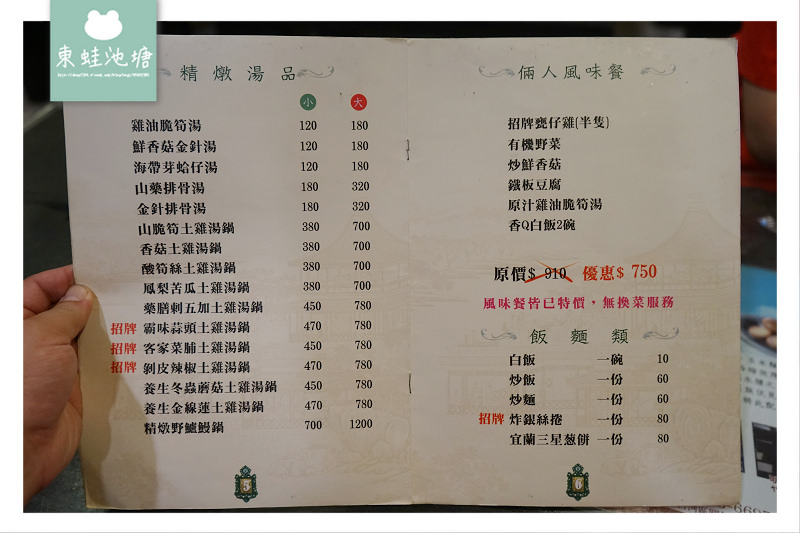 東蛙池塘
精燉湯品
小 大
雞油脆筍湯 120 180
鮮香菇金針湯 120 180
海帶芽蛤仔湯 120 180
山藥排骨湯 180 320
金針排骨湯 180 320
山脆筍土雞湯鍋 380 700
香菇土雞湯鍋 380 700
酸筍絲土雞湯鍋 380 700
鳳梨苦瓜土雞湯鍋 380 700
藥膳刺五加土雞湯鍋 450 780
招牌 霸味蒜頭土雞湯鍋 470 780
招牌 客家菜脯土雞湯鍋 450 780
招牌 剝皮辣椒土雞湯鍋 470 780
養生冬蟲蘑菇土雞湯鍋 450 780
養生金線蓮土雞湯鍋 470 780
精燉野鱸鰻鍋 700 1200
5
倆人風味餐
招牌甕仔雞(半隻)
有機野菜
炒鮮香菇
鐵板豆腐
原汁雞油脆筍湯
香Q白飯2碗
原價$ 910 優惠$ 750
風味餐皆已特價，無換菜服務
飯麵類
白飯 一碗 10
炒飯 一份 60
炒麵 一份 60
招牌 炸銀絲捲 一份 80
宜蘭三星葱餅 一份 80
6